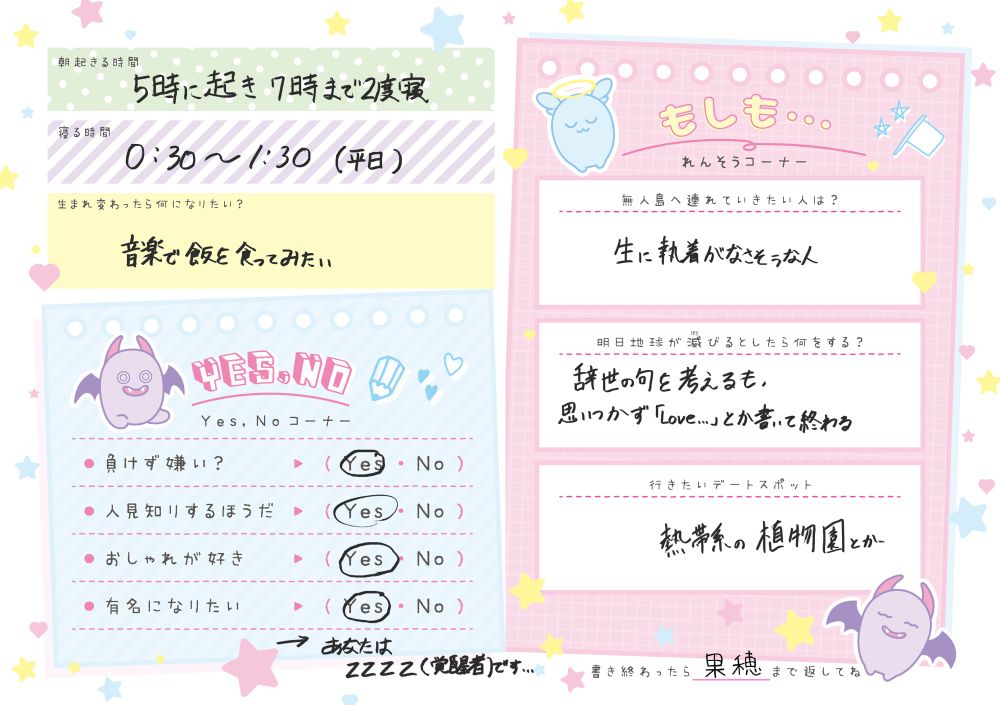 朝起きる時間
5時に起き 7時まで2度寝
寝る時間
0:30〜1:30 (平日)
生まれ変わったら何になりたい?
音楽で飯を食ってみたい
YES,NO
Yes,Noコーナー
負けず嫌い? (Yes・No)
人見知りするほうだ (Yes・No)
おしゃれが好き (Yes・No)
有名になりたい (Yes・No)
→ あなたは
ZZZZ(覚醒者)です…
もしも…
れんそうコーナー
無人島へ連れていきたい人は?
生に執着がなさそうな人
明日地球が滅びるとしたら何をする?
辞世の句を考えるも、
思いつかず「Love…」とか書いて終わる
行きたいデートスポット
熱帯系の植物園とか…
書き終わったら 果穂 まで返してね